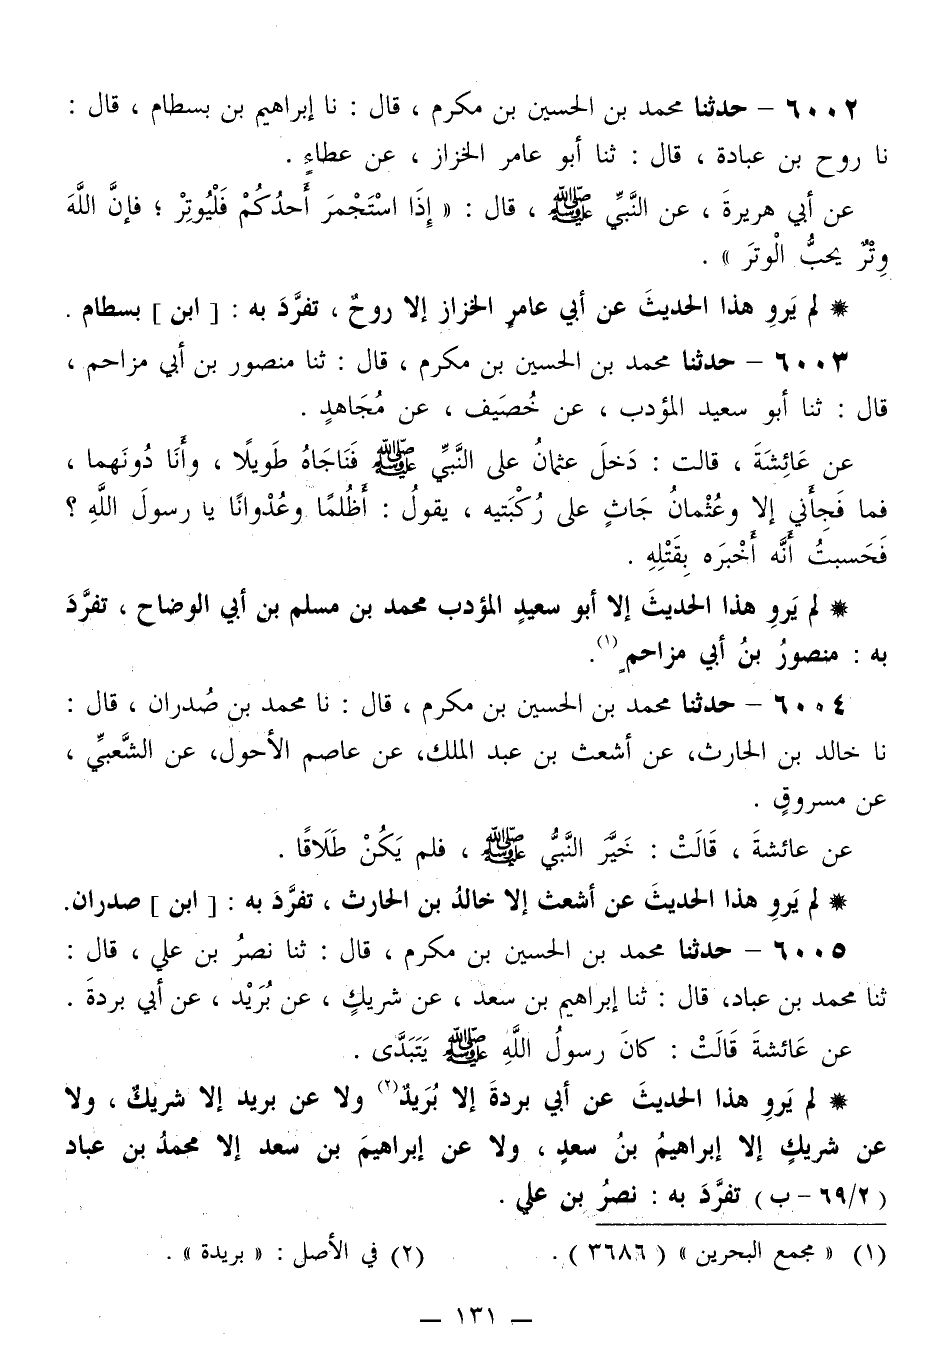 ٦٠٠٢ – حدثنا محمد بن الحسين بن مكرم ، قال : نا إبراهيم بن بسطام ، قال :
نا روح بن عبادة ، قال : ثنا أبو عامر الخزاز ، عن عطاءٍ .
عن أبي هريرةَ ، عن النَّبيِّ ﷺ ، قال : « إِذَا اسْتَجْمرَ أَحدُكُمْ فَلْيُوتِرْ ؛ فإنَّ اللَّهَ
وِتْرٌ يحبُّ الْوترَ » .
* لم يَروِ هذا الحديثَ عن أبي عامرٍ الخزاز إلا روحٌ ، تفرَّدَ به : [ ابن ] بسطام .
٦٠٠٣ – حدثنا محمد بن الحسين بن مكرم ، قال : ثنا منصور بن أبي مزاحم ،
قال : ثنا أبو سعيد المؤدب ، عن خُصَيف ، عن مُجَاهدٍ .
عن عَائِشَةَ ، قالت : دَخلَ عثمانُ على النَّبيِّ ﷺ فَنَاجَاهُ طَويلًا ، وأَنَا دُونَهما ،
فما فَجِأَني إلا وعُثْمانُ جَاثٍ على رُكْبَتيه ، يقولُ : أَظُلمًا وعُدْوانًا يا رسولَ اللَّهِ ؟
فَحَسبتُ أَنَّه أَخْبرَه بِقَتْلِهِ .
* لم يَروِ هذا الحديثَ إلا أبو سعيدٍ المؤدب محمد بن مسلم بن أبي الوضاح ، تفرَّدَ
به : منصورُ بنُ أبي مزاحمٍ(١).
٦٠٠٤ – حدثنا محمد بن الحسين بن مكرم ، قال : نا محمد بن صُدران ، قال :
نا خالد بن الحارث، عن أشعث بن عبد الملك، عن عاصم الأحول، عن الشَّعبيِّ ،
عن مسروقٍ .
عن عائشةَ ، قَالَتْ : خَيَّرَ النَّبيُّ ﷺ ، فلم يَكُنْ طَلَاقًا .
* لم يَروِ هذا الحديثَ عن أشعث إلا خالدُ بن الحارث ، تفرَّدَ به : [ ابن ] صدران.
٦٠٠٥ – حدثنا محمد بن الحسين بن مكرم ، قال : ثنا نصرُ بن علي ، قال :
ثنا محمد بن عباد، قال : ثنا إبراهيم بن سعد ، عن شريكٍ ، عن بُرَيْد ، عن أبي بردةَ .
عن عَائشةَ قَالَتْ : كانَ رسولُ اللَّهِ ﷺ يَتَبَدَّى .
* لم يَروِ هذا الحديثَ عن أبي بردةَ إلا بُرَيدٌ(٢) ولا عن بريد إلا شريكٌ ، ولا
عن شريكٍ إلا إبراهيمُ بنُ سعدٍ ، ولا عن إبراهيمَ بن سعد إلا محمدُ بن عباد
( ٦٩/٢ – ب ) تفرَّدَ به : نصرُ بن علي .
(١) « مجمع البحرين » ( ٣٦٨٦ ) .
(٢) في الأصل : « بريدة » .
— ١٣١ —